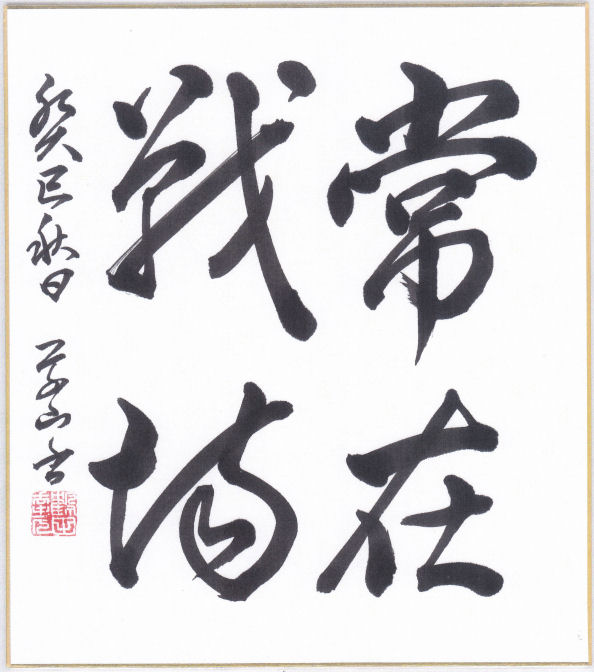 常在
戦場
癸巳秋日